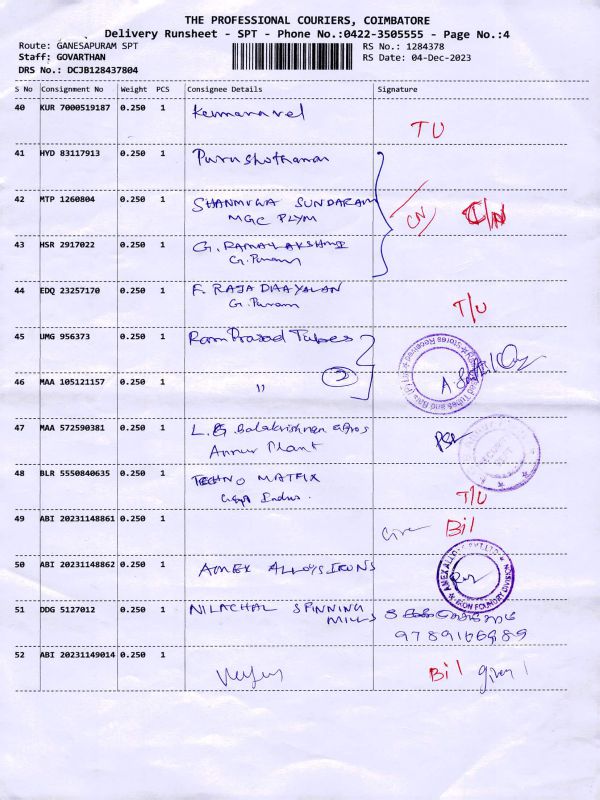 THE PROFESSIONAL COURIERS, COIMBATORE
Delivery Runsheet - SPT - Phone No.:0422-3505555 - Page No.:4
Route: GANESAPURAM SPT
RS No.: 1284378
Staff: GOVARTHAN
RS Date: 04-Dec-2023
DRS No.: DCJB128437804
S No Consignment No Weight PCS Consignee Details Signature
40 KUR 7000519187 0.250 1
TU
41 HYD 83117913 0.250 1 Purushothaman
42 MTP 1260804 0.250 1 SHANMUGA SUNDARAM
MGC PLYM
CN C/N
43 HSR 2917022 0.250 1 G. RAMALAKSHMI
G. Puram
44 EDQ 23257170 0.250 1 F. RAJA DHAYALAN
G. Puram
T/U
45 UMG 956373 0.250 1 Ram Prasad Tubes
46 MAA 105121157 0.250 1 " 2
47 MAA 572590381 0.250 1 L.G. Balakrishnan & Bros
Annur Plant
48 BLR 5550840635 0.250 1 TECHNO MATRIX
Indus.
T/U
49 ABI 20231148861 0.250 1
Bil
50 ABI 20231148862 0.250 1 AMEX ALLOYS IRONS
AMEX ALLOYS PVT. LTD
IRON FOUNDRY DIVISION
51 DDG 5127012 0.250 1 NILACHAL SPINNING
MILLS
52 ABI 20231149014 0.250 1
Bil given